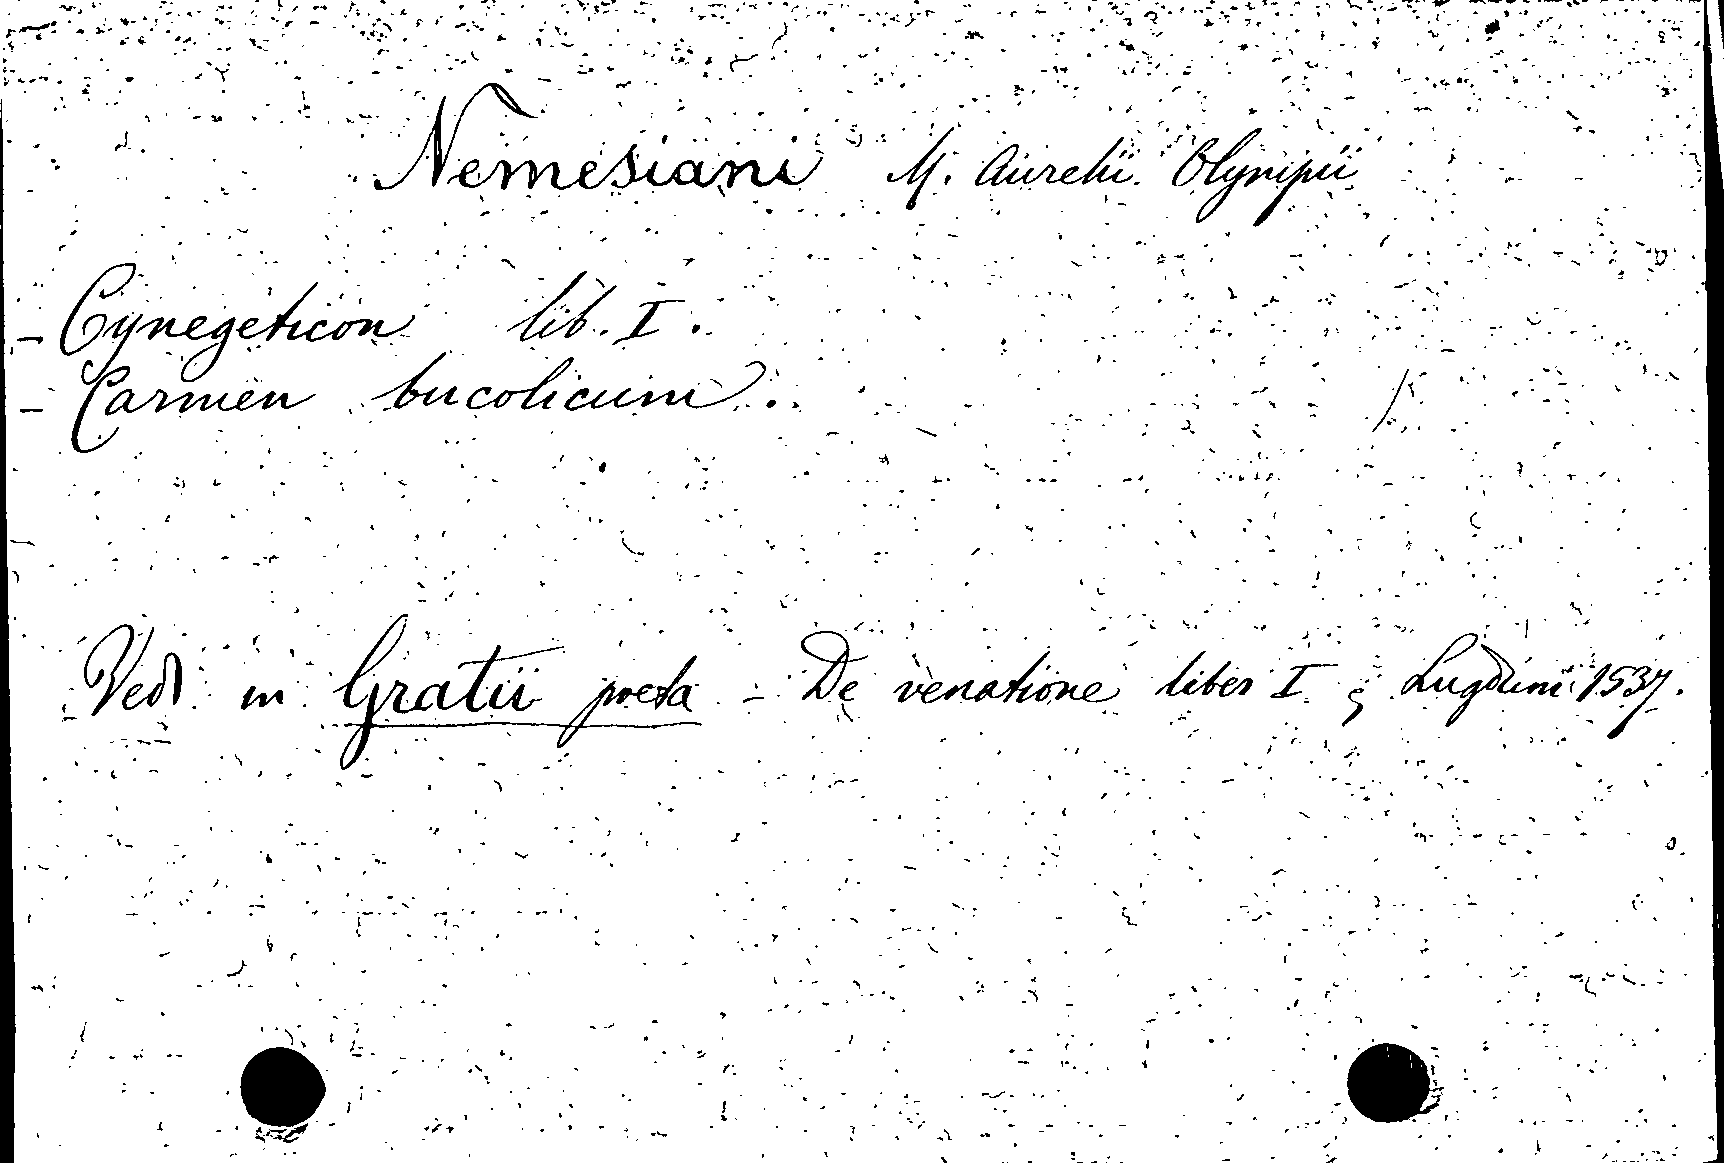 Nemesiani M. Aurelii Olympii
- Cynegeticon lib. I.
- Carmen bucolicum.
Vedi in Gratii poeta - De venatione liber I ; Lugduni 1537.